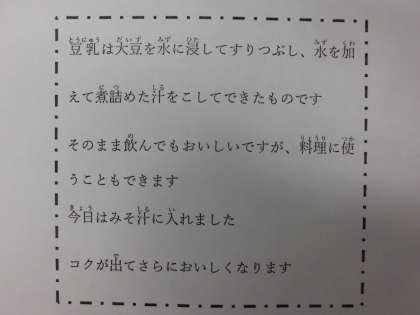 豆乳は大豆を水に浸してすりつぶし、水を加
えて煮詰めた汁をこしてできたものです
そのまま飲んでもおいしいですが、料理に使
うこともできます
今日はみそ汁に入れました
コクが出てさらにおいしくなります